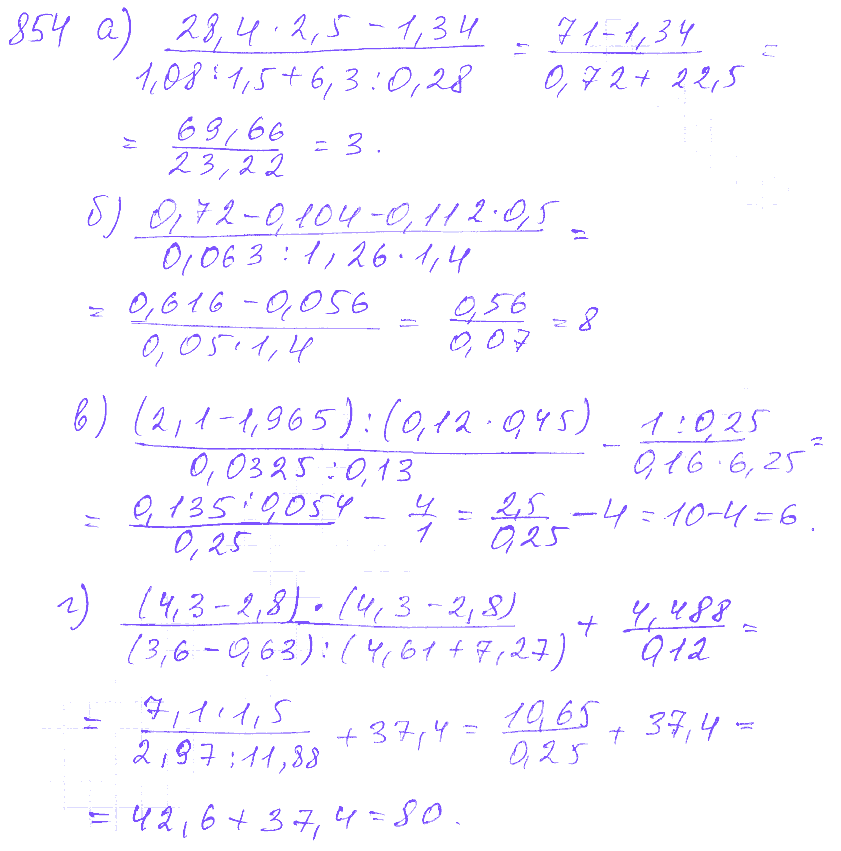 854 а) (28,4 · 2,5 − 1,34)/(1,08 : 1,5 + 6,3 : 0,28) = (71 − 1,34)/(0,72 + 22,5) =
= 69,66/23,22 = 3.
б) (0,72 − 0,104 − 0,112 · 0,5)/(0,063 : 1,26 · 1,4) =
= (0,616 − 0,056)/(0,05 · 1,4) = 0,56/0,07 = 8
в) ((2,1 − 1,965) : (0,12 · 0,45))/(0,0325 : 0,13) − (1 : 0,25)/(0,16 · 6,25) =
= (0,135 : 0,054)/0,25 − 4/1 = 2,5/0,25 − 4 = 10 − 4 = 6.
г) ((4,3 − 2,8) · (4,3 − 2,8))/((3,6 − 0,63) : (4,61 + 7,27)) + 4,488/0,12 =
= (7,1 · 1,5)/(2,97 : 11,88) + 37,4 = 10,65/0,25 + 37,4 =
= 42,6 + 37,4 = 80.